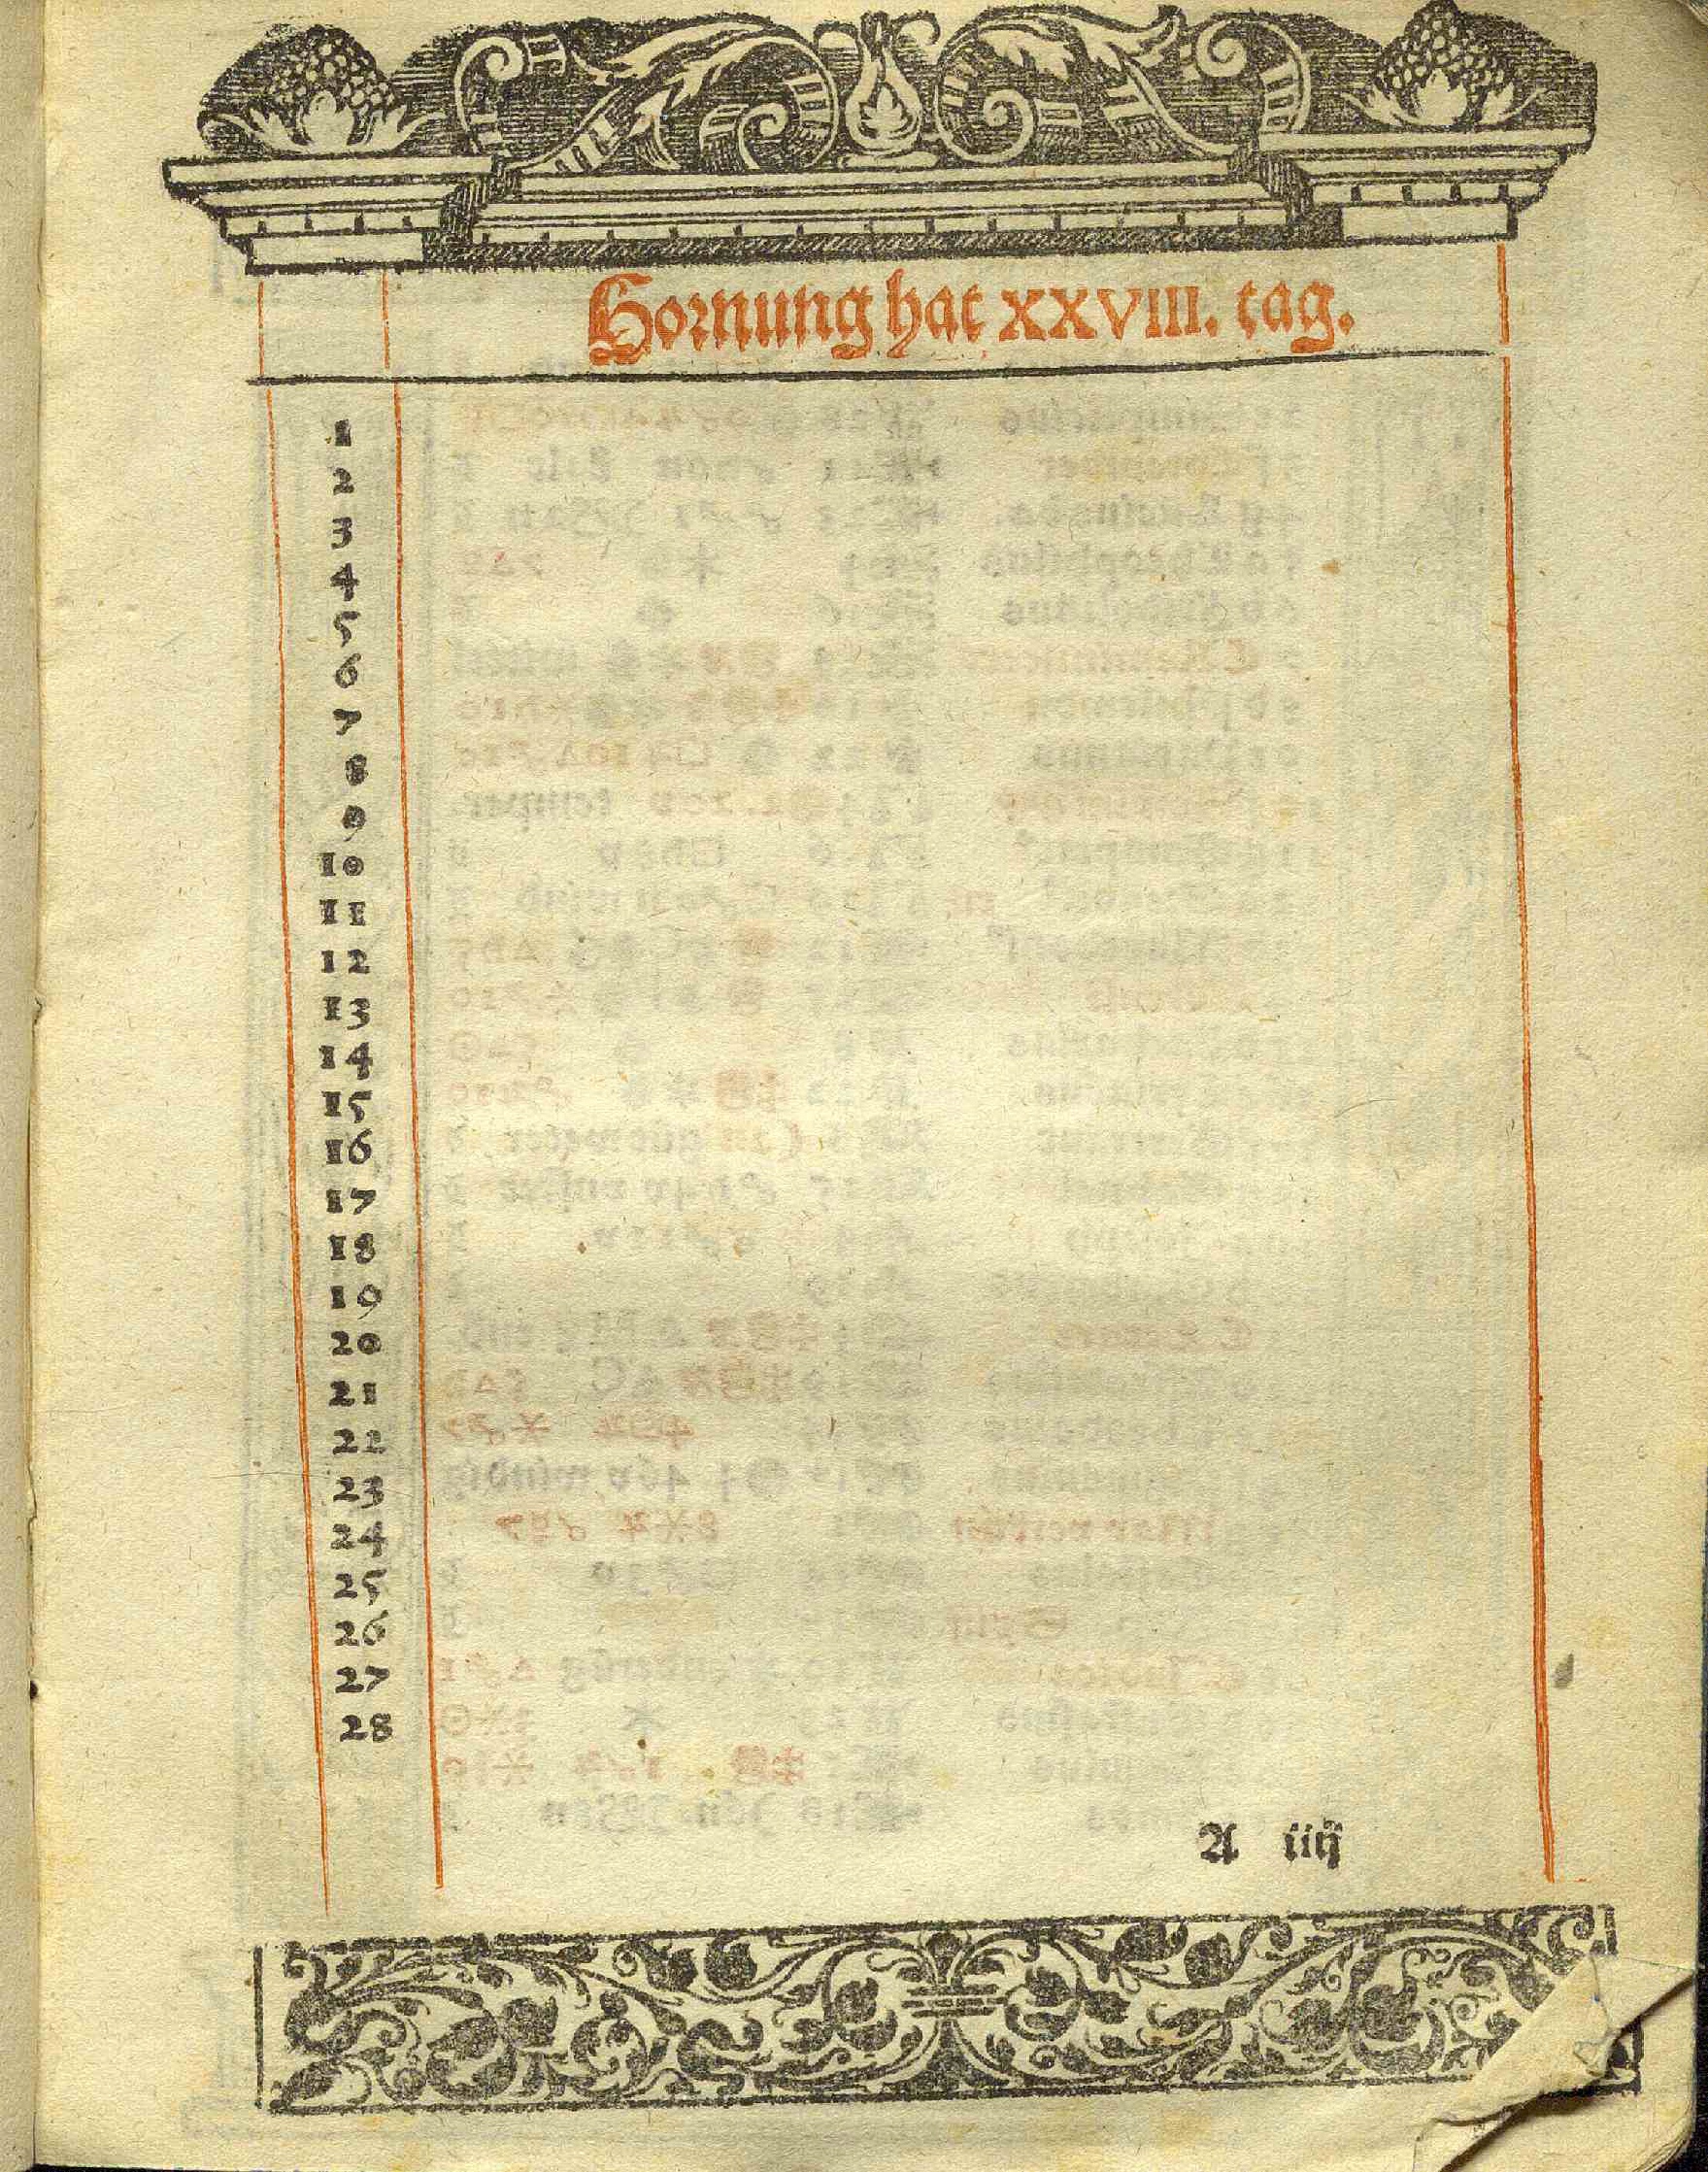 Hornung hat XXVIII. tag.
1
2
3
4
5
6
7
8
9
10
11
12
13
14
15
16
17
18
19
20
21
22
23
24
25
26
27
28
A iiij